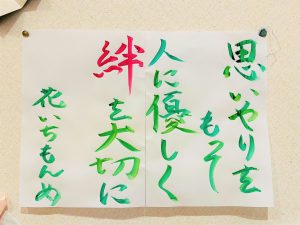 思いやりを
もって
人に優しく
絆を大切に
花いちもんめ